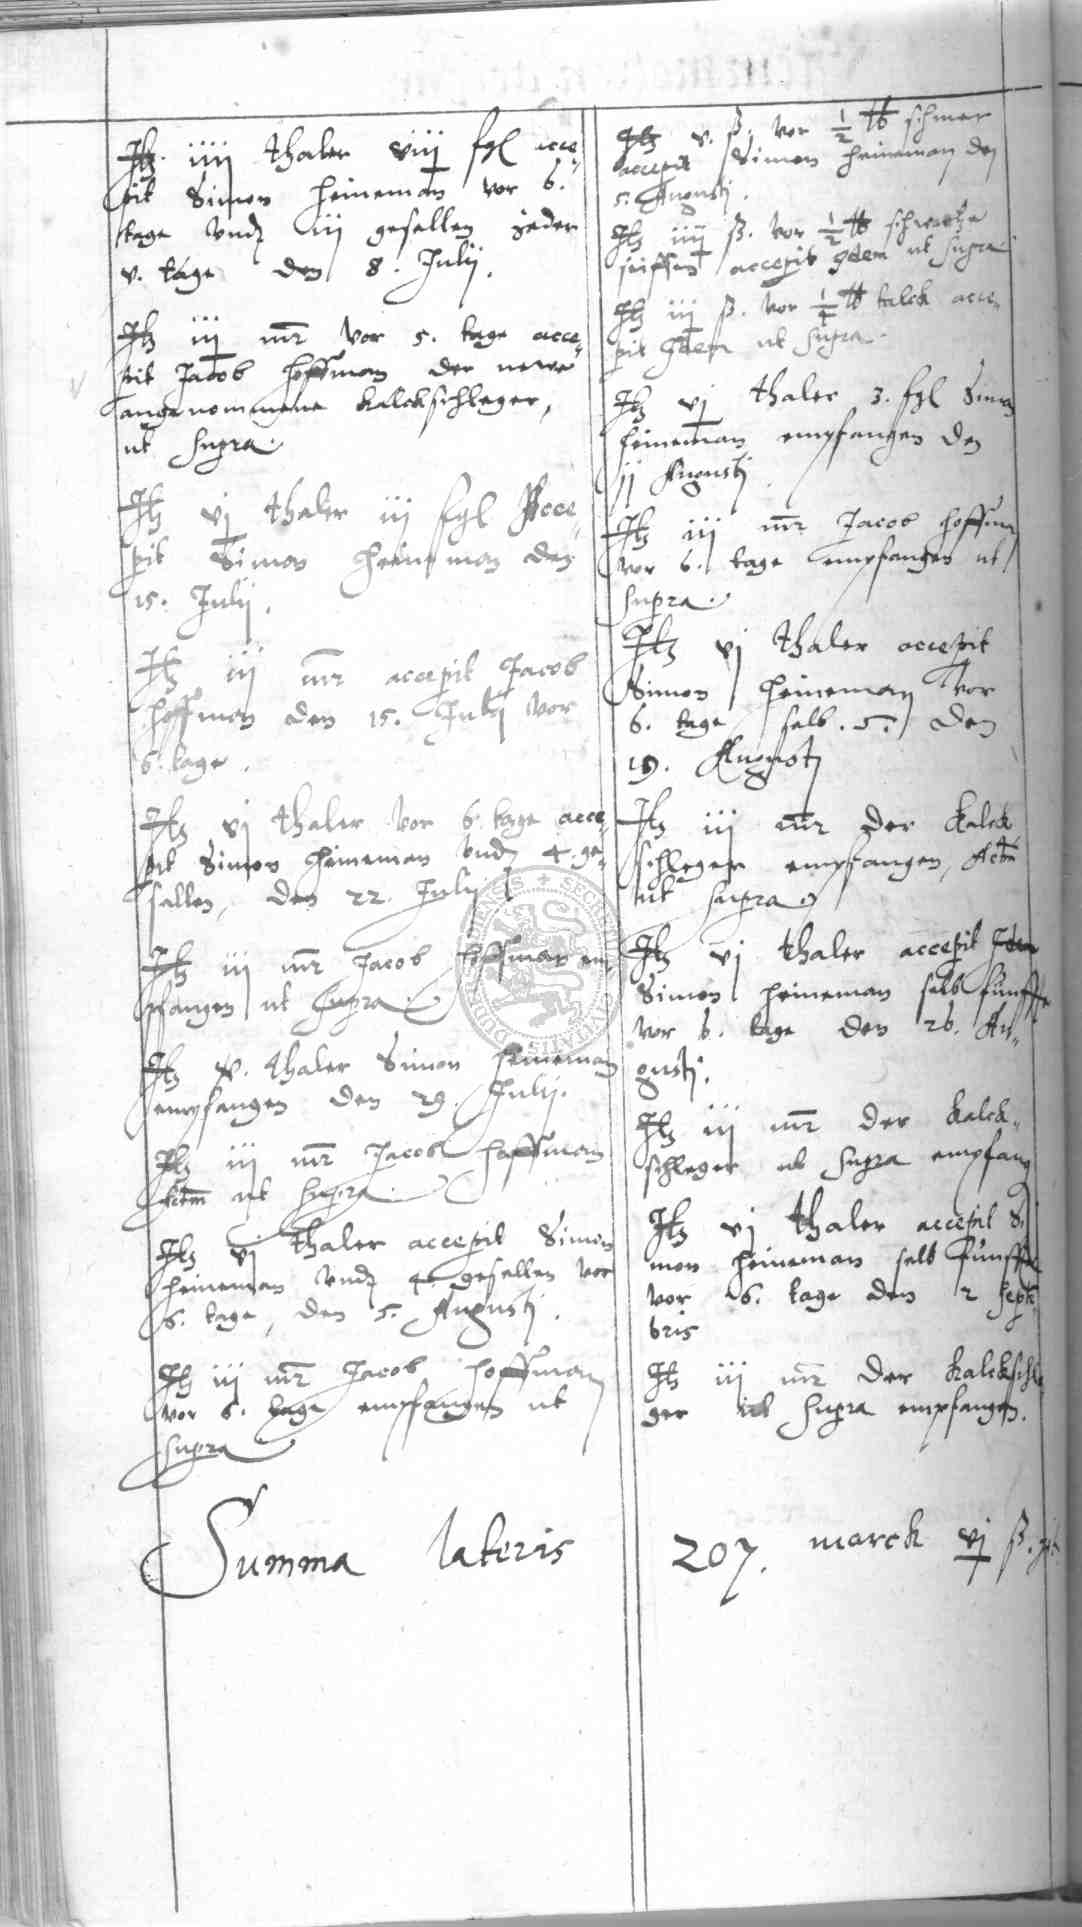 Itz iiij thaler viij fgl acce-
pit Simon Heineman vor 6.
tage vnd iij gesellen jeder
v. tage den 8. Julij.
Itz iij mr vor 5. tage acce-
pit Jacob Hoffman der newe
angenommene kalckschleger,
ut supra.
Itz vj thaler iij fgl Acce-
pit Simon Heineman den
15. Julij.
Itz iij mr accepit Jacob
Hoffman den 15. Julij vor
6. tage.
Itz vj thaler vor 6. tage acce-
pit Simon Heineman vnd 4 ge-
sellen, den 22. Julij
Itz iij mr Jacob Hoffman em-
pfangen ut supra.
Itz v. thaler Simon Heineman
empfangen den 29. Julij.
Itz iij mr Jacob Hoffman
Actm ut supra.
Itz vj thaler accepit Simon
Heineman vnd 4. gesellen vor
6. tage, den 5. Augustj.
Itz iij mr Jacob Hoffman
vor 6. tage empfangen ut
supra
Itz v. ß. vor 1/2 ℔ schmer
accepit Simon Heineman den
5. Augustj.
Itz iiij ß. vor 1/2 ℔ schwartze
seiffen accepit Idem ut supra
Itz iij ß. vor 1/4 ℔ kalck acce-
pit Idem ut supra.
Itz vj thaler 3. fgl Simon
Heineman empfangen den
jj Augustj
Itz iij mr Jacob Hoffman
vor 6. tage empfangen ut
supra.
Itz vj thaler accepit
Simon Heineman vor
6. tage selb. 5. den
19. Augustj
Itz iij mr der kalck
schleger empfangen, Actm
ut supra.
Itz vj thaler accepit Idem
Simon Heineman selb fünffte
vor 6. tage den 26. Au-
gustj.
Itz iij mr der kalck-
schleger ut supra empfang
Itz vj thaler accepit Si
mon Heineman selb fünffte
vor 6. tage den 2 Septe
bris
Itz iij mr der kalckschle
ger ut supra empfangen.
Summa lateris 207. marck vj ß.